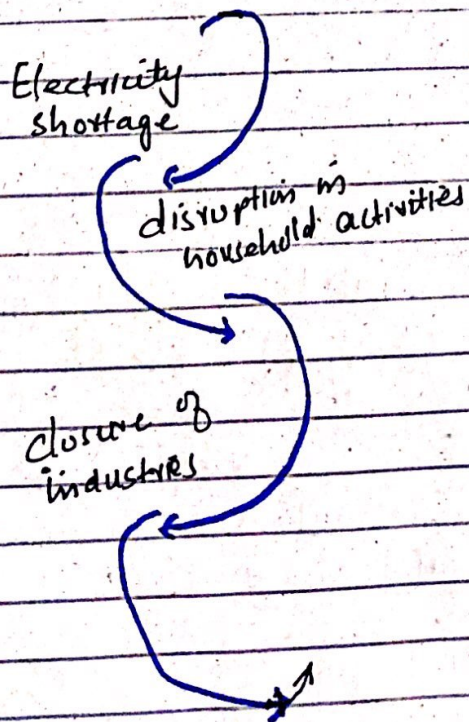 Electricity
shortage
disruption in
household activities
closure of
industries